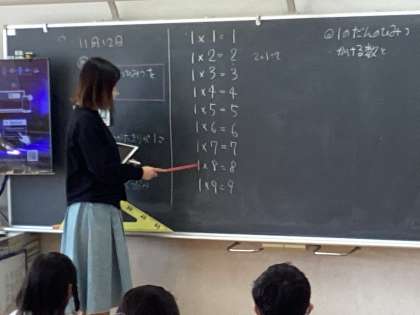 11月12日
ひみつを
1×1=1
1×2=2
1×3=3
1×4=4
1×5=5
1×6=6
1×7=7
1×8=8
1×9=9
1のだんのひみつ
かける数と